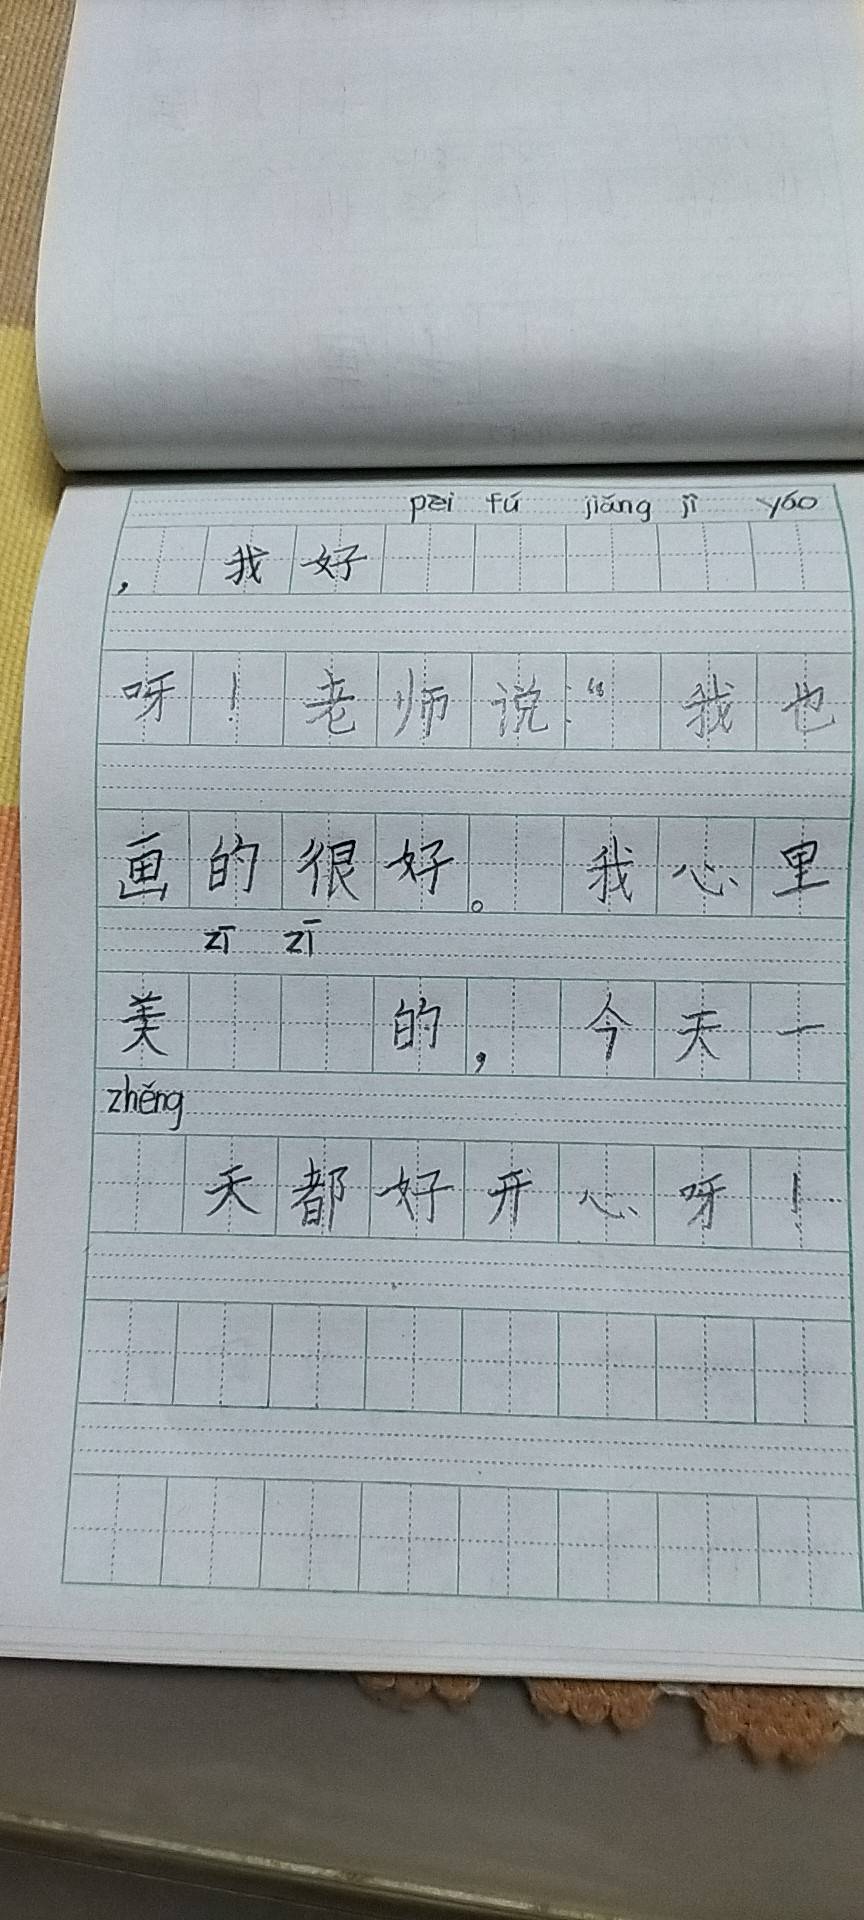 pēi fú jiǎng jī yáo
，我好
呀！老师说：“我也
画的很好。我心里
zī zī
美的，今天一
zhěng
天都好开心呀！